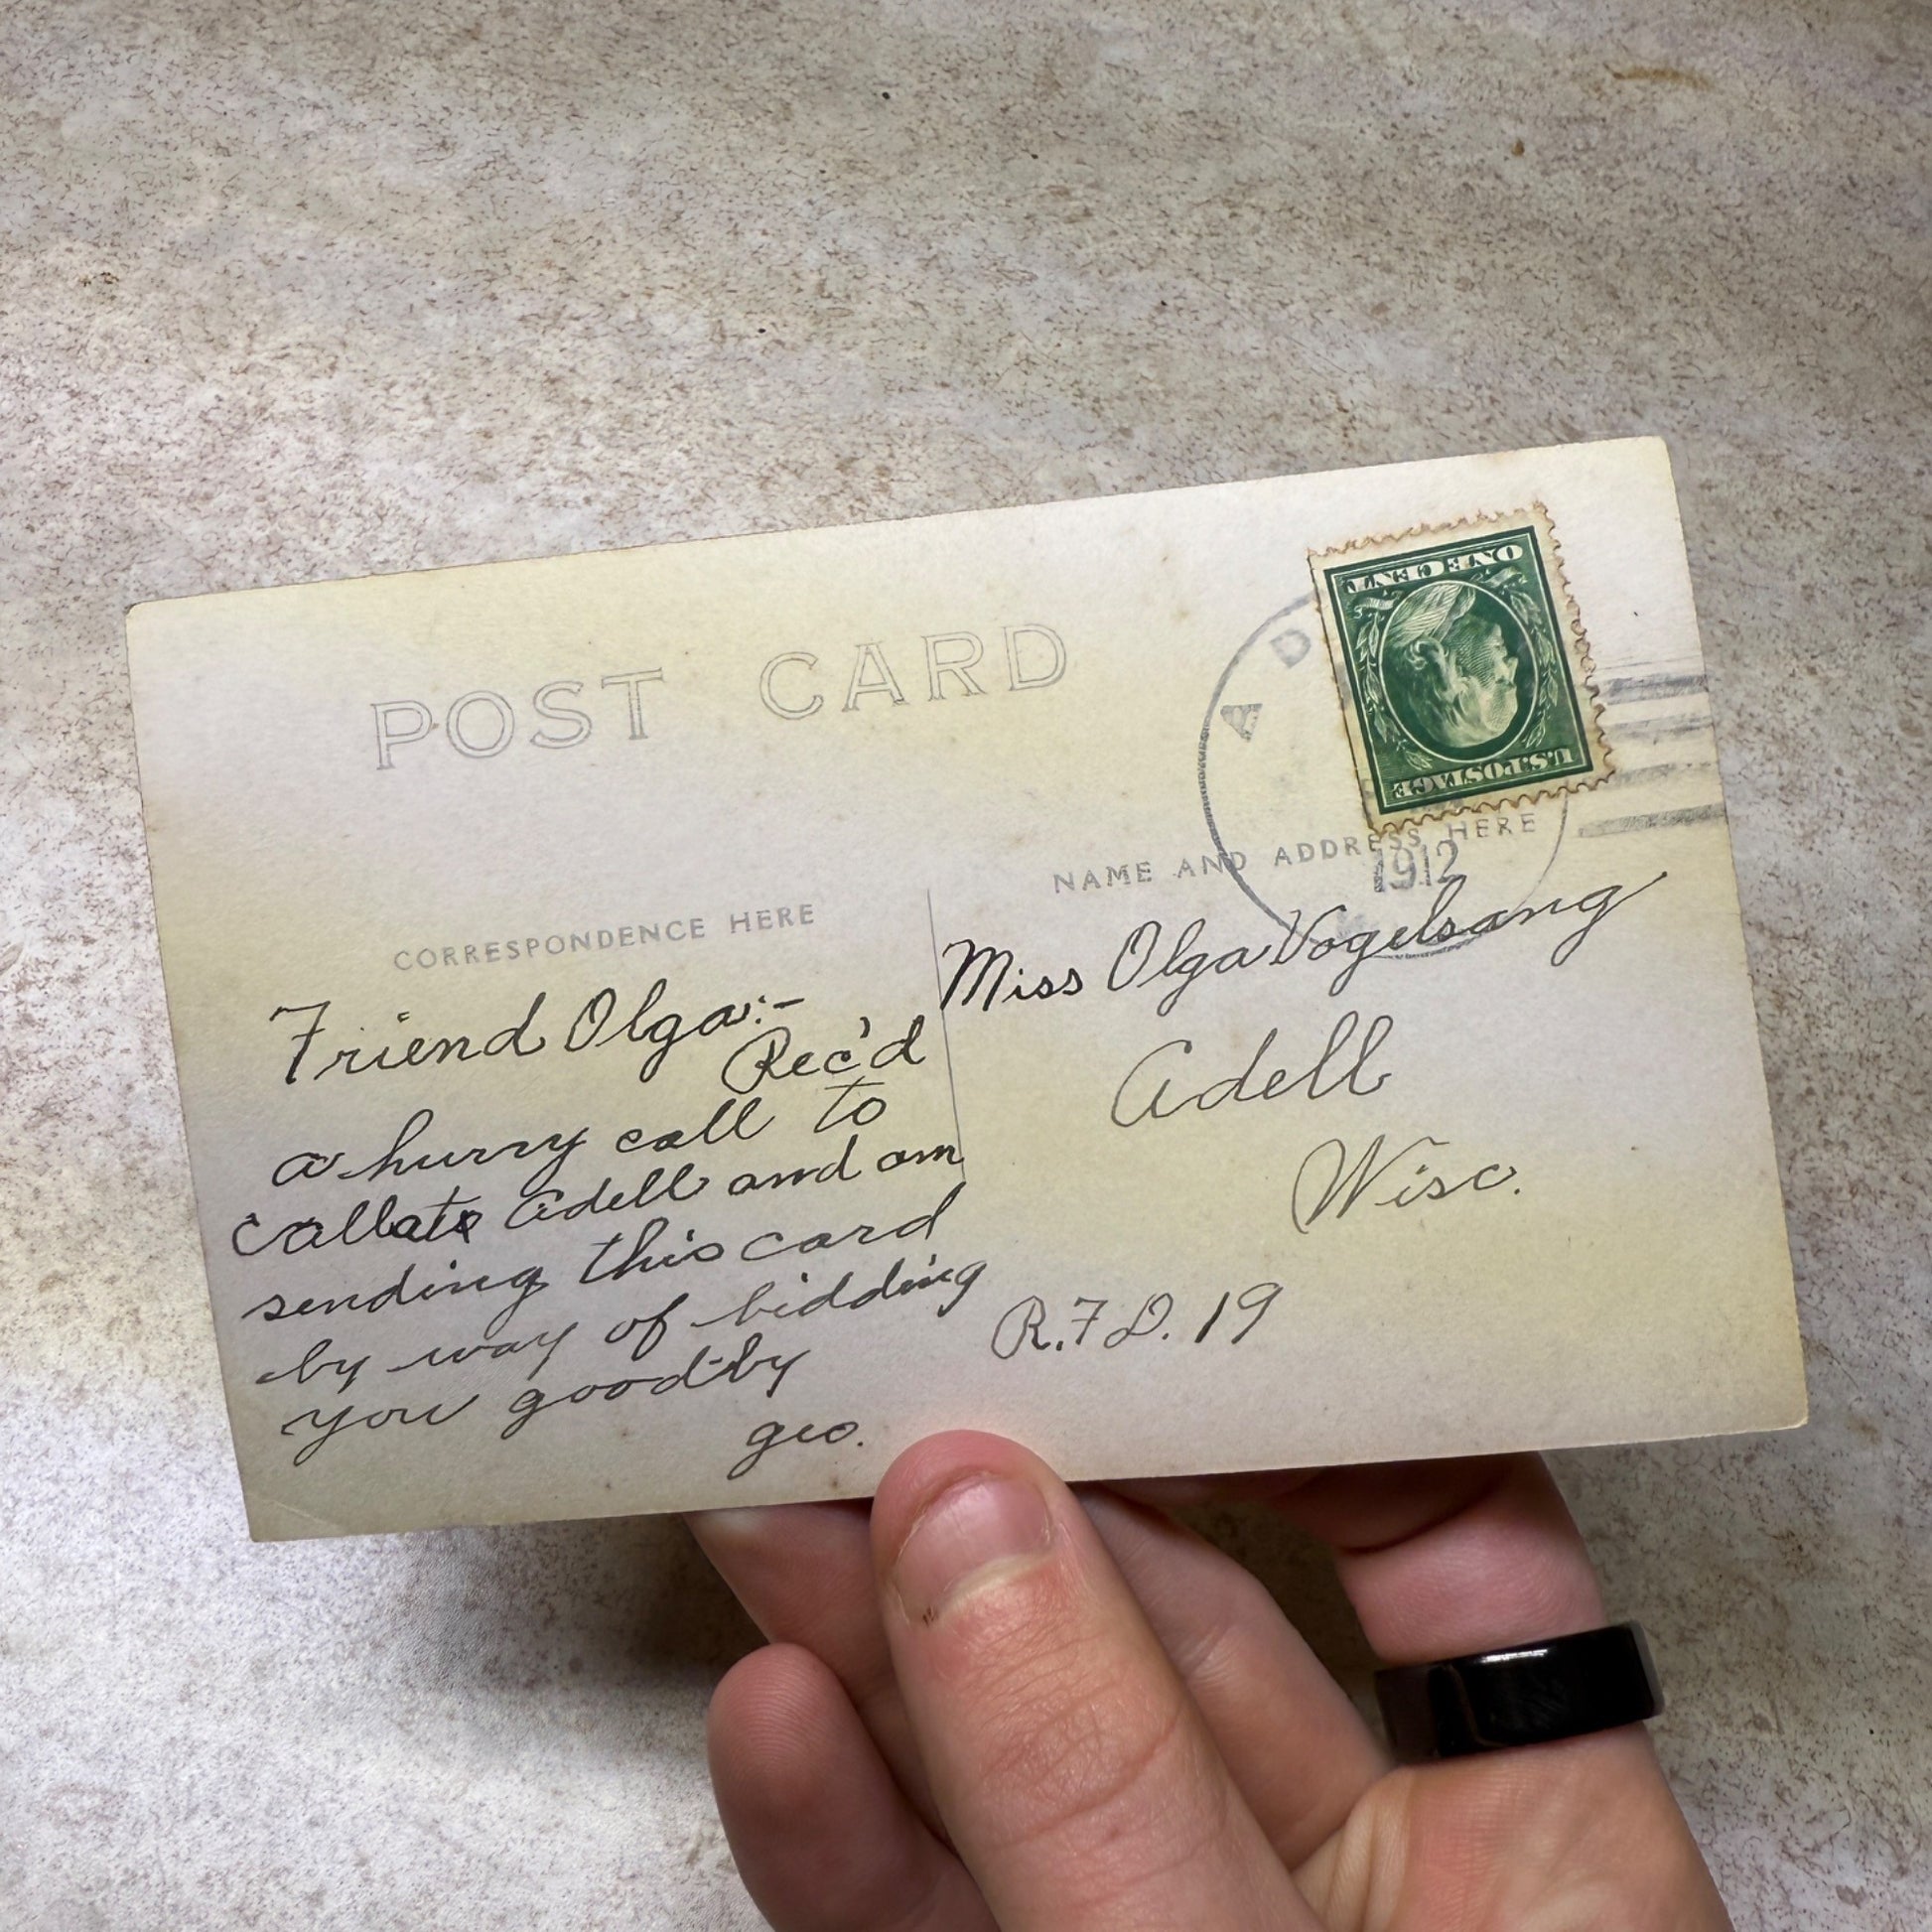 POST CARD
ONE CENT
U.S. POSTAGE
A D
1912
CORRESPONDENCE HERE
NAME AND ADDRESS HERE
Friend Olga:-
Rec'd
a hurry call to
call at Adell and am
sending this card
by way of bidding
you good-by
geo.
Miss Olga Vogelsang
Adell
Wisc.
R.F.D. 19